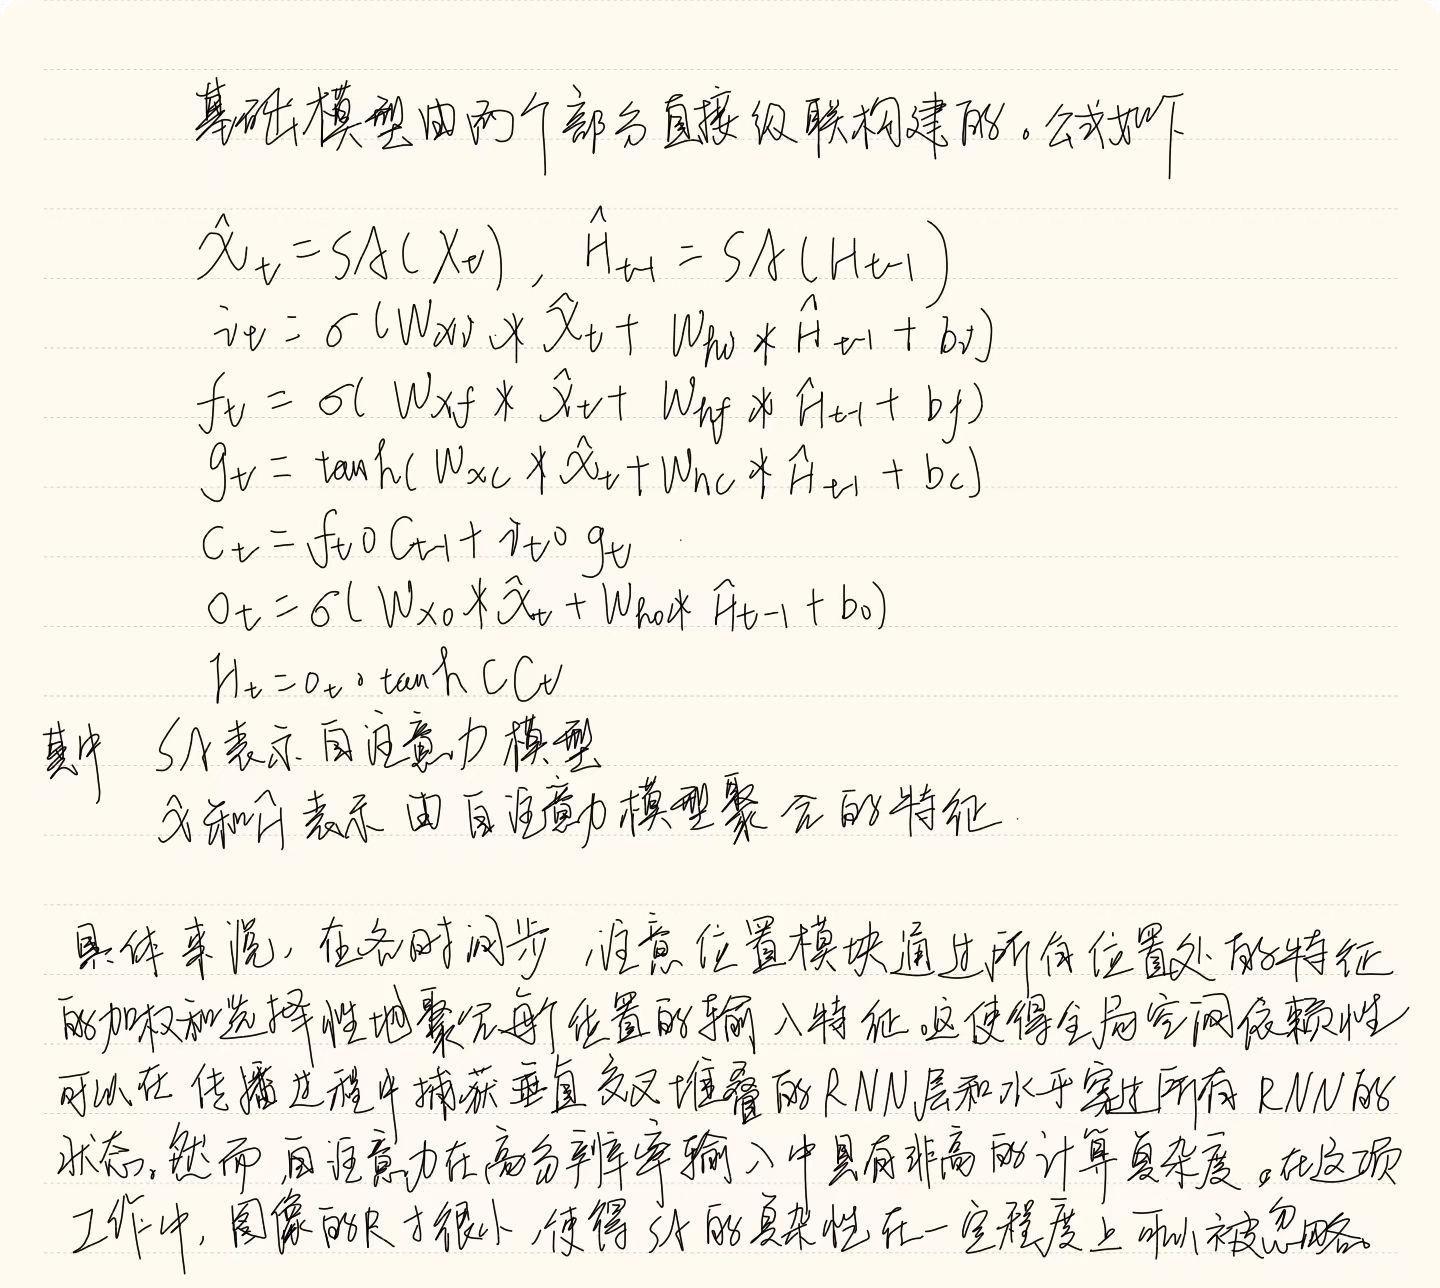 基础模型由两个部分直接级联构建的。公式如下
X̂t = SA(Xt), Ĥt-1 = SA(Ht-1)
it = σ(Wxi * X̂t + Whi * Ĥt-1 + bi)
ft = σ(Wxf * X̂t + Whf * Ĥt-1 + bf)
gt = tanh(Wxc * X̂t + Whc * Ĥt-1 + bc)
Ct = ft∘Ct-1 + it∘gt
Ot = σ(Wxo * X̂t + Who * Ĥt-1 + bo)
Ht = Ot∘tanh(Ct
其中 SA表示自注意力模型
X̂和Ĥ表示由自注意力模型聚合的特征.
具体来说,在各时间步,注意位置模块通过所有位置处的特征
的加权和选择性地聚合每个位置的输入特征。这使得全局空间依赖性
可以在传播过程中捕获垂直交叉堆叠的RNN层和水平穿过所有RNN的
状态。然而自注意力在高分辨率输入中具有非高的计算复杂度。在这项
工作中,图像的尺寸很小,使得SA的复杂性在一定程度上可以被忽略。